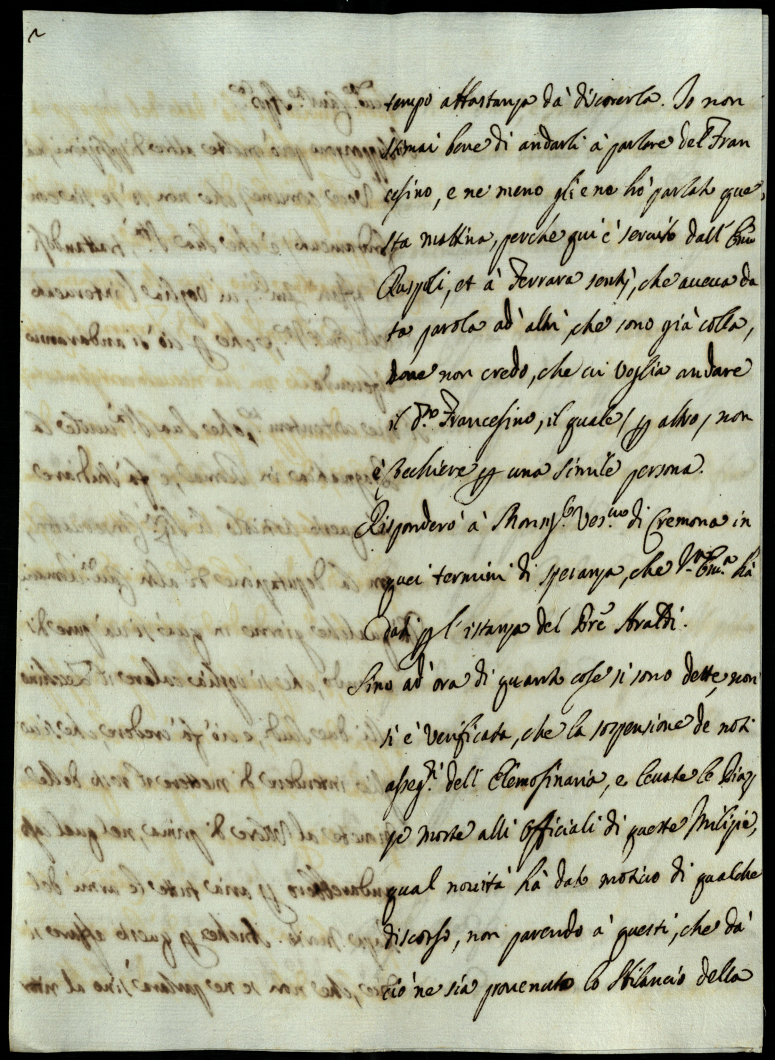 tempo abbastanza dà discorerla. Io non
stimai bene di andarli à parlare del Fran
cesino, e ne meno gliene hò parlato que,
sta mattina, perche qui è servito dall' Emo
Ruspoli, et à Ferrara sentij, che aveva da
ta parola ad' altri, che sono già colla,
dove non credo, che ci voglia andare
il do Francesino, il quale / p altro / non
è Bechiere p una simile persona.
Risponderò à Monsigr Vescovo di Cremona in
quei termini di speranza, che V. Emza hà
dati p l'istanza del Pre Araldi.
Sino ad' ora di quante cose si sono dette, non
si è verificata, che la sospensione de noti
assegti dell' Elemosinaria, e levate le Piaz
ze morte alli Officiali di queste Milizie,
qual novità hà dato motivo di qualche
discorso, non parendo à questi, che dà
ciò ne sia provenuto lo Sbilancio della